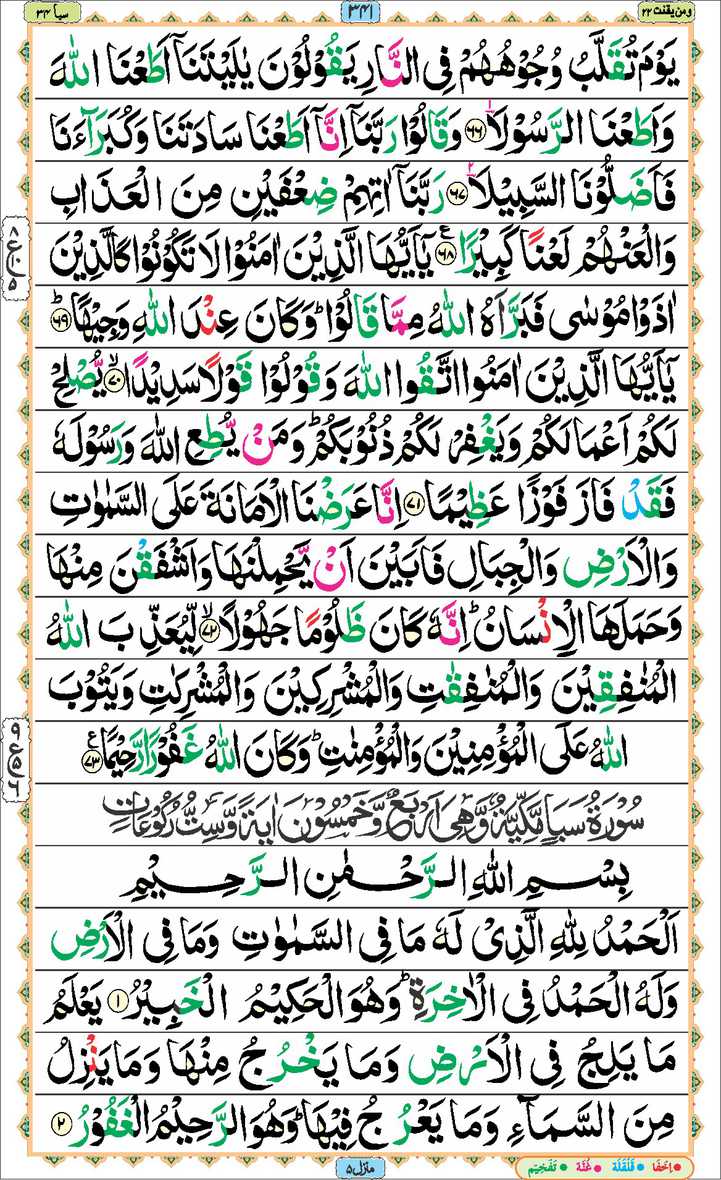 ومن یقنت ۲۲
۳۴۱
سبا ۳۴
یَوْمَ تُقَلَّبُ وُجُوْهُهُمْ فِی النَّارِ یَقُوْلُوْنَ یٰلَیْتَنَاۤ اَطَعْنَا اللّٰهَ
وَاَطَعْنَا الرَّسُوْلَا ﴿۶۶﴾ وَقَالُوْا رَبَّنَاۤ اِنَّاۤ اَطَعْنَا سَادَتَنَا وَكُبَرَآءَنَا
فَاَضَلُّوْنَا السَّبِیْلَا ﴿۶۷﴾ رَبَّنَاۤ اٰتِهِمْ ضِعْفَیْنِ مِنَ الْعَذَابِ
وَالْعَنْهُمْ لَعْنًا كَبِیْرًا ﴿۶۸﴾ یٰۤاَیُّهَا الَّذِیْنَ اٰمَنُوْا لَا تَكُوْنُوْا كَالَّذِیْنَ
اٰذَوْا مُوْسٰی فَبَرَّاَهُ اللّٰهُ مِمَّا قَالُوْا ؕ وَكَانَ عِنْدَ اللّٰهِ وَجِیْهًا ﴿۶۹﴾
یٰۤاَیُّهَا الَّذِیْنَ اٰمَنُوا اتَّقُوا اللّٰهَ وَقُوْلُوْا قَوْلًا سَدِیْدًا ﴿۷۰﴾ یُّصْلِحْ
لَكُمْ اَعْمَالَكُمْ وَیَغْفِرْ لَكُمْ ذُنُوْبَكُمْ ؕ وَمَنْ یُّطِعِ اللّٰهَ وَرَسُوْلَهٗ
فَقَدْ فَازَ فَوْزًا عَظِیْمًا ﴿۷۱﴾ اِنَّا عَرَضْنَا الْاَمَانَةَ عَلَی السَّمٰوٰتِ
وَالْاَرْضِ وَالْجِبَالِ فَاَبَیْنَ اَنْ یَّحْمِلْنَهَا وَاَشْفَقْنَ مِنْهَا
وَحَمَلَهَا الْاِنْسَانُ ؕ اِنَّهٗ كَانَ ظَلُوْمًا جَهُوْلًا ﴿۷۲﴾ لِّیُعَذِّبَ اللّٰهُ
الْمُنٰفِقِیْنَ وَالْمُنٰفِقٰتِ وَالْمُشْرِكِیْنَ وَالْمُشْرِكٰتِ وَیَتُوْبَ
اللّٰهُ عَلَی الْمُؤْمِنِیْنَ وَالْمُؤْمِنٰتِ ؕ وَكَانَ اللّٰهُ غَفُوْرًا رَّحِیْمًا ﴿۷۳﴾
سُوْرَةُ سَبَاٍ مَّكِّیَّةٌ وَّهِیَ اَرْبَعٌ وَّخَمْسُوْنَ اٰیَةً وَّسِتُّ رُكُوْعَاتٍ
بِسْمِ اللّٰهِ الرَّحْمٰنِ الرَّحِیْمِ
اَلْحَمْدُ لِلّٰهِ الَّذِیْ لَهٗ مَا فِی السَّمٰوٰتِ وَمَا فِی الْاَرْضِ
وَلَهُ الْحَمْدُ فِی الْاٰخِرَةِ ؕ وَهُوَ الْحَكِیْمُ الْخَبِیْرُ ﴿۱﴾ یَعْلَمُ
مَا یَلِجُ فِی الْاَرْضِ وَمَا یَخْرُجُ مِنْهَا وَمَا یَنْزِلُ
مِنَ السَّمَآءِ وَمَا یَعْرُجُ فِیْهَا ؕ وَهُوَ الرَّحِیْمُ الْغَفُوْرُ ﴿۲﴾
۸ ع ۵
۹ ع ۵ ۶
منزل ۵
اخفا قلقلة غنّه تفخیم